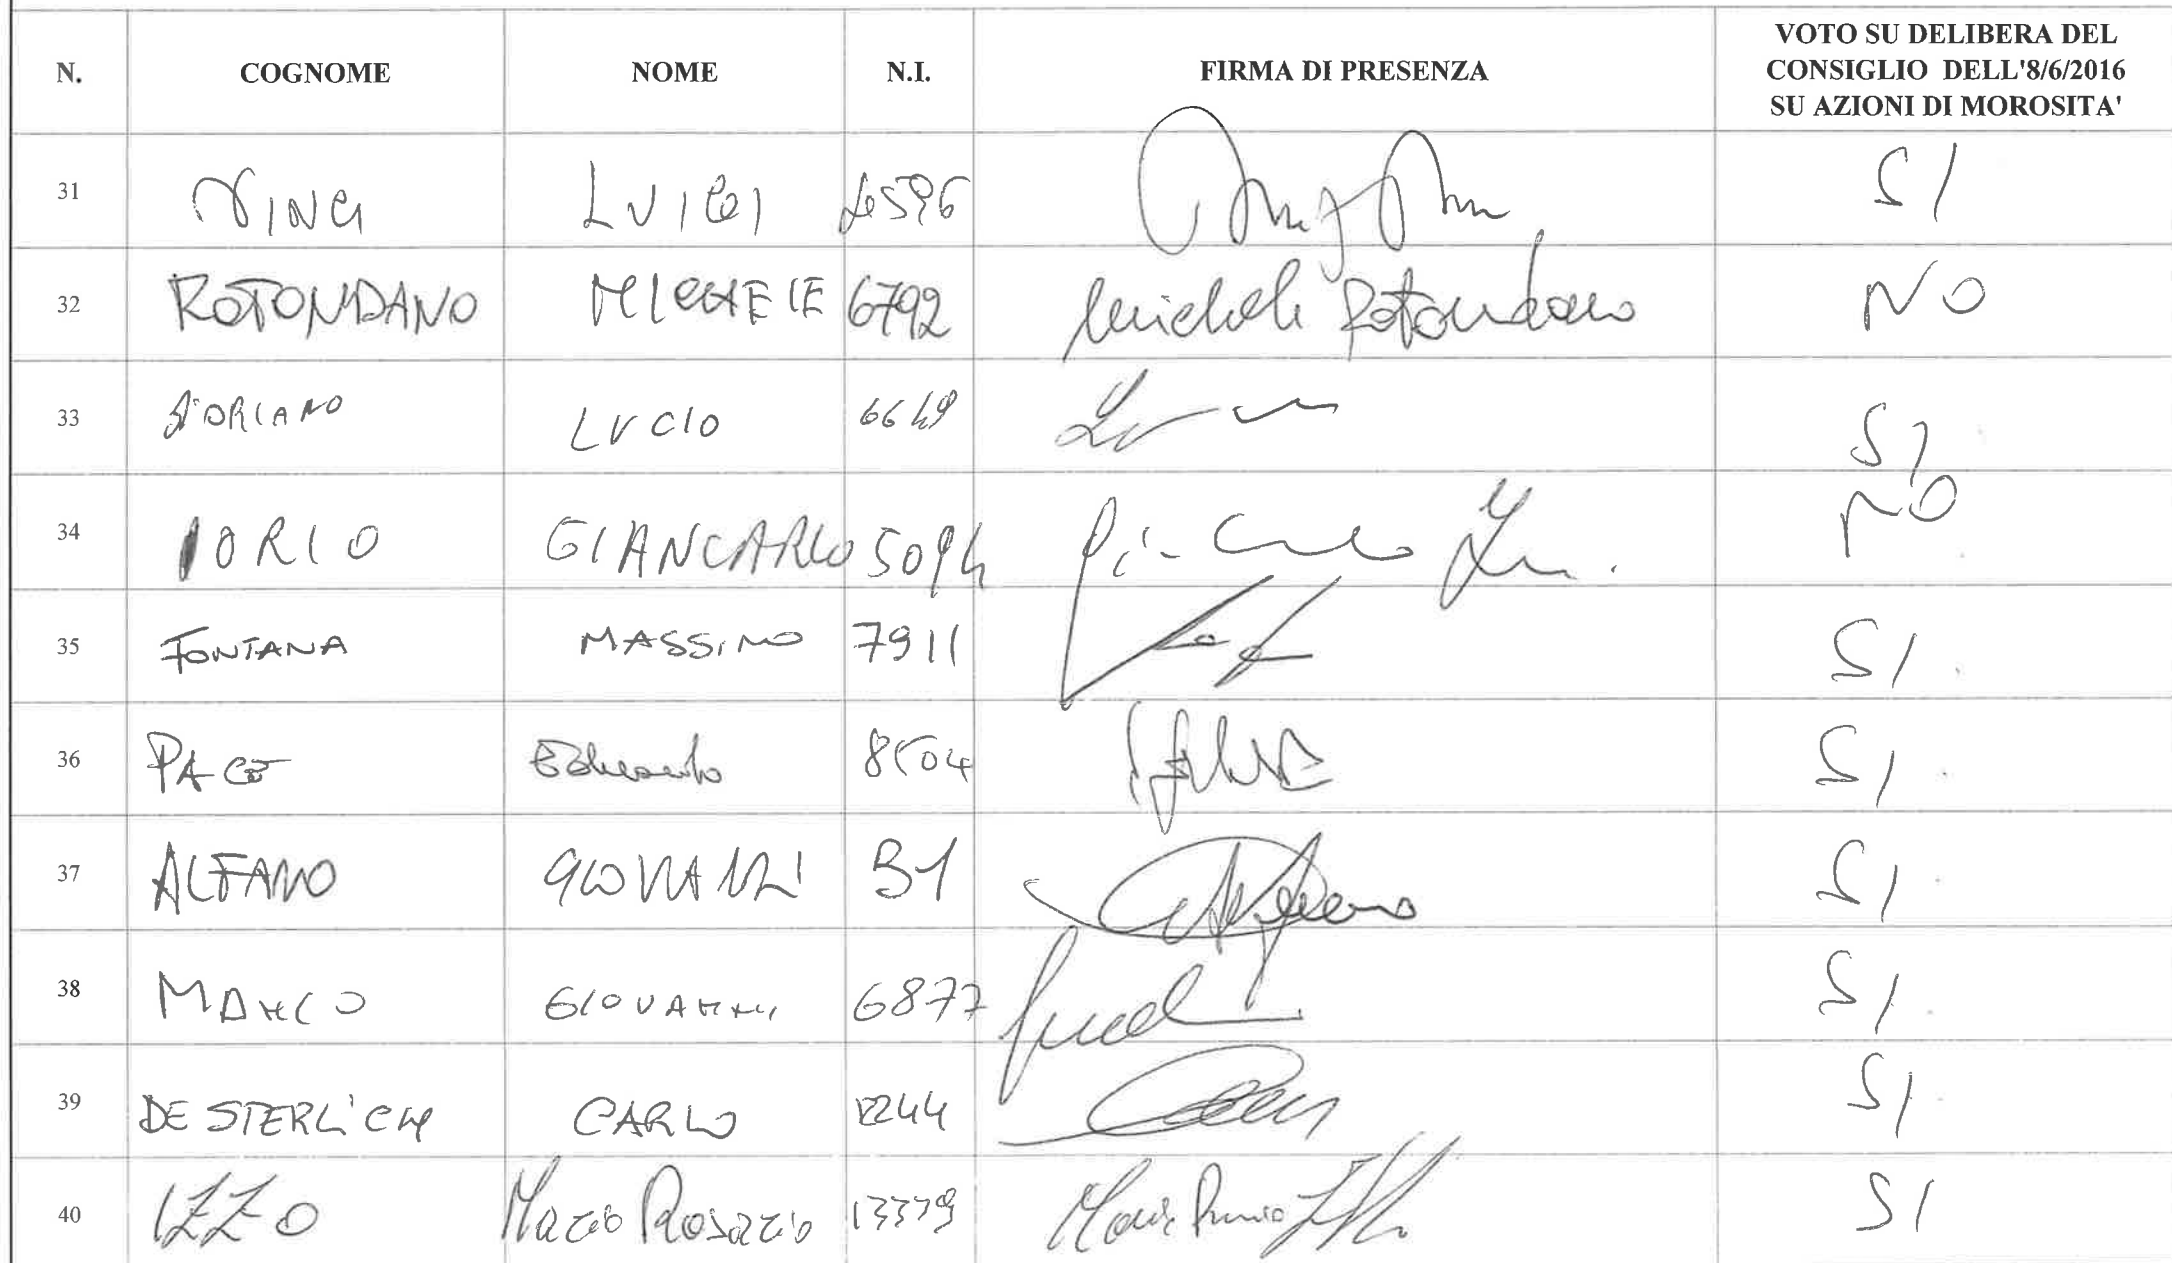 N. COGNOME NOME N.I. FIRMA DI PRESENZA VOTO SU DELIBERA DEL
CONSIGLIO DELL'8/6/2016
SU AZIONI DI MOROSITA'
31 VINCI LUIGI SI
32 ROTONDANO MICHELE 6792 Michele Rotondano NO
33 LUCIO 6649 SI
34 IORIO GIANCARLO 5094 NO
35 FONTANA MASSIMO 7911 SI
36 PACE Edoardo 8504 SI
37 ALFANO GIOVANNI B1 SI
38 MANCO GIOVANNI 6877 SI
39 DE STERLICH CARLO 1244 SI
40 IZZO Mario Rosario 13379 SI